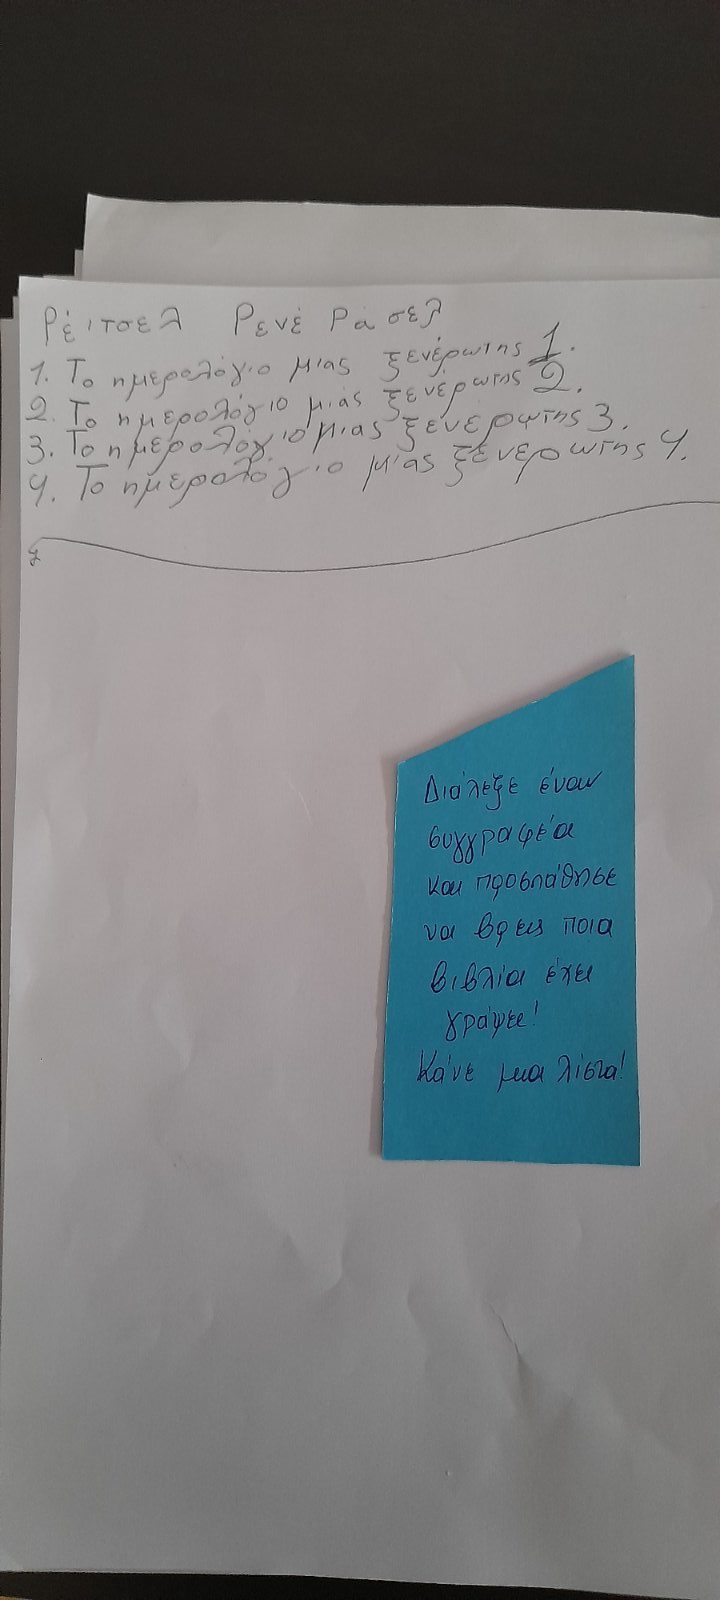 Ρέιτσελ Ρενέ Ράσελ
1. Το ημερολόγιο μιας ξενέρωτης 1.
2. Το ημερολόγιο μιάς ξενέρωτης 2.
3. Το ημερολόγιο μιας ξενέρωτης 3.
4. Το ημερολόγιο μίας ξενέρωτης 4.
Διάλεξε έναν
συγγραφέα
και προσπάθησε
να βρεις ποια
βιβλία έχει
γράψει!
Κάνε μια λίστα!